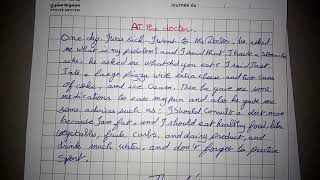 Journée du :
At the doctor.
One day, I was sick. I went to the Doctor, he asked
me what is my problem and I said that I have a stomach
ache, he asked me what did you eat? I said that
I ate a large pizza with extra cheese and two cans
of coke, and ice cream. Then he gave me some
medications to ease my pain and also he gave me
some advices such as: I should consult a diet man
because I am fat, and I should eat healthy food, like
vegetables, fruits, carbs, and dairy product, and
drinks much water, and don't forget to practice
sport.